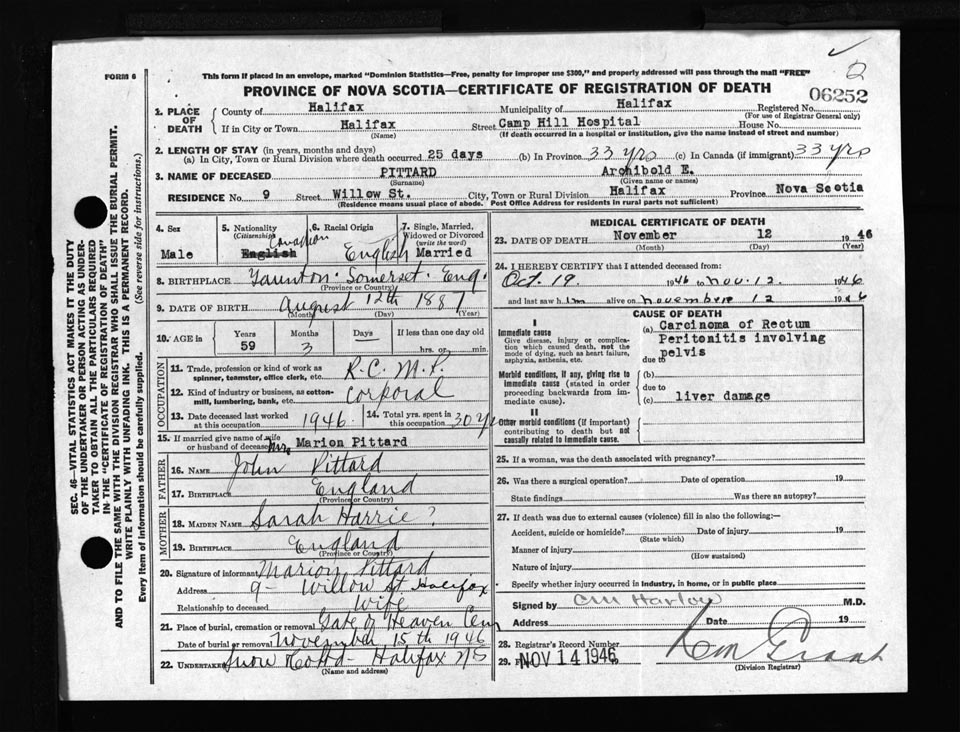 FORM 6
This form if placed in an envelope, marked "Dominion Statistics—Free, penalty for improper use $300," and properly addressed will pass through the mail "FREE"
2
PROVINCE OF NOVA SCOTIA—CERTIFICATE OF REGISTRATION OF DEATH
06252
1. PLACE OF DEATH County of Halifax Municipality of Halifax Registered No.
(For use of Registrar General only)
If in City or Town Halifax Street Camp Hill Hospital House No.
(Name) (If death occurred in a hospital or institution, give the name instead of street and number)
2. LENGTH OF STAY (in years, months and days)
(a) In City, Town or Rural Division where death occurred 25 days (b) In Province 33 yrs (c) In Canada (if immigrant) 33 yrs
3. NAME OF DECEASED PITTARD Archibold E.
(Surname) (Given name or names)
RESIDENCE No. 9 Street Willow St. City, Town or Rural Division Halifax Province Nova Scotia
(Residence means usual place of abode. Post Office Address for residents in rural parts not sufficient)
4. Sex 5. Nationality (Citizenship) 6. Racial Origin 7. Single, Married, Widowed or Divorced (write the word)
Male English Canadian English Married
8. BIRTHPLACE Taunton. Somerset. Eng.
(Province or Country)
9. DATE OF BIRTH August 12th 1887
(Month) (Day) (Year)
10. AGE in Years Months Days If less than one day old
59 3 hrs. or min.
OCCUPATION
11. Trade, profession or kind of work as spinner, teamster, office clerk, etc. R.C.M.P.
12. Kind of industry or business, as cotton-mill, lumbering, bank, etc. corporal
13. Date deceased last worked at this occupation 1946. 14. Total yrs. spent in this occupation 30 Yr
15. If married give name of wife or husband of deceased Mrs Marion Pittard
FATHER
16. NAME John Pittard
17. BIRTHPLACE England
(Province or Country)
MOTHER
18. MAIDEN NAME Sarah Harrie?
19. BIRTHPLACE England
(Province or Country)
20. Signature of informant Marion Pittard
Address 9- Willow St. Halifax
Relationship to deceased Wife
21. Place of burial, cremation or removal Gate of Heaven Cem
Date of burial or removal November 15th 1946
22. UNDERTAKER Snow - Halifax NS
(Name and address)
MEDICAL CERTIFICATE OF DEATH
23. DATE OF DEATH November 12 1946
(Month) (Day) (Year)
24. I HEREBY CERTIFY that I attended deceased from:
Oct. 19 1946 to Nov. 12 1946
and last saw him alive on November 12 1946
CAUSE OF DEATH
I
Immediate cause
Give disease, injury or complication which caused death, not the mode of dying, such as heart failure, asphyxia, asthenia, etc.
(a) Carcinoma of Rectum
Peritonitis involving
pelvis
due to
Morbid conditions, if any, giving rise to immediate cause (stated in order proceeding backwards from immediate cause).
(b)
due to
(c) liver damage
II
Other morbid conditions (if important) contributing to death but not causally related to immediate cause.
25. If a woman, was the death associated with pregnancy?
26. Was there a surgical operation? Date of operation 19
State findings Was there an autopsy?
27. If death was due to external causes (violence) fill in also the following:—
Accident, suicide or homicide? Date of injury 19
(State which)
Manner of injury
(How sustained)
Nature of injury
Specify whether injury occurred in industry, in home, or in public place
Signed by CM Harlow M.D.
Address Date 19
28. Registrar's Record Number
29. NOV 14 1946
(Division Registrar)
SEC. 46—VITAL STATISTICS ACT MAKES IT THE DUTY
OF THE UNDERTAKER OR PERSON ACTING AS UNDER-
TAKER TO OBTAIN ALL THE PARTICULARS REQUIRED
IN THE "CERTIFICATE OF REGISTRATION OF DEATH"
AND TO FILE THE SAME WITH THE DIVISION REGISTRAR WHO SHALL ISSUE THE BURIAL PERMIT.
WRITE PLAINLY WITH UNFADING INK. THIS IS A PERMANENT RECORD.
Every item of information should be carefully supplied. (See reverse side for instructions.)